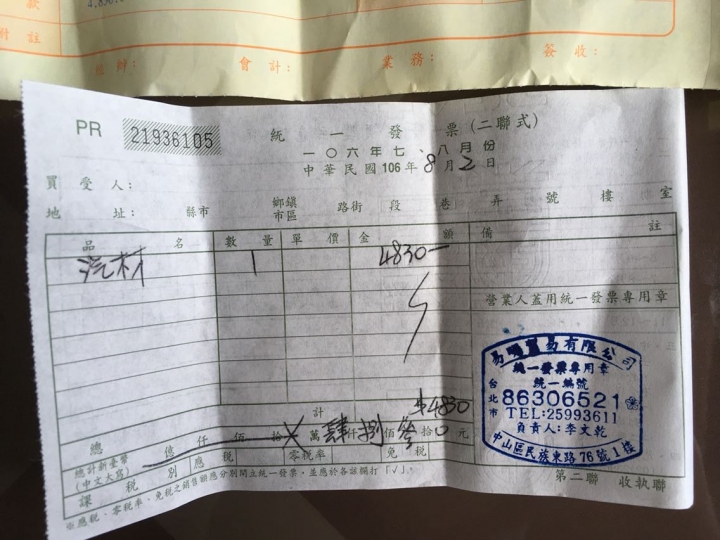 款
4,830
附註
經辦： 會計： 業務： 簽收：
PR 21936105 統一發票（二聯式）
一〇六年七、八月份
中華民國106年8月2日
買受人：
地址： 縣市 鄉鎮市區 路街 段 巷 弄 號 樓 室
品名 數量 單價 金額 備註
汽材 1 4830－
營業人蓋用統一發票專用章
易 貿易有限公司
統一發票專用章
統一編號
台北市 86306521
TEL:25993611
負責人:李文乾
中山區民族東路76號1樓
總計 $4830
總計新臺幣（中文大寫） 億 仟 佰 拾 萬 肆仟 捌佰 參拾 0元
課稅別 應稅 零稅率 免稅
※應稅、零稅率、免稅之銷售額應分別開立統一發票，並應於各該欄打「√」。
第二聯 收執聯